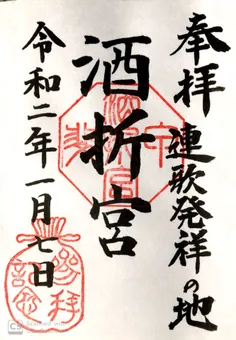 奉拝
連歌発祥の地
酒折宮
令和二年一月七日
参拝
記念
CS Scanned with